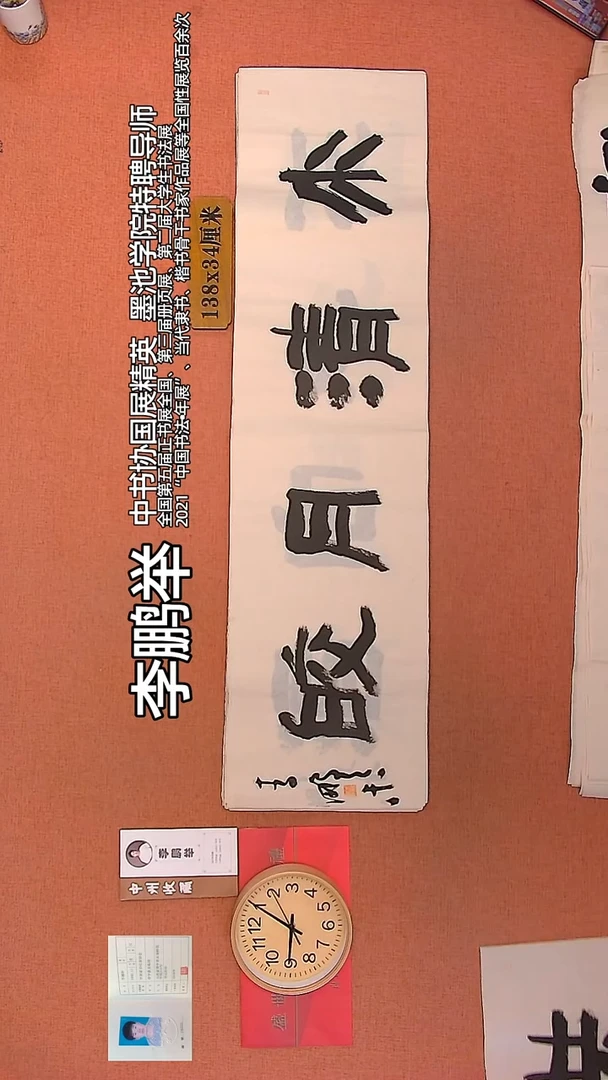 李鹏举
中书协国展精英 墨池学院特聘导师
全国第五届正书展全国、第三届册页展、第二届大学生书法展
2021“中国书法·年展”、当代隶书、楷书骨干书家作品展等全国性展览百余次
138x34厘米
水清月皎
李鹏举
盛世
12
1
2
3
4
5
6
7
8
9
10
11